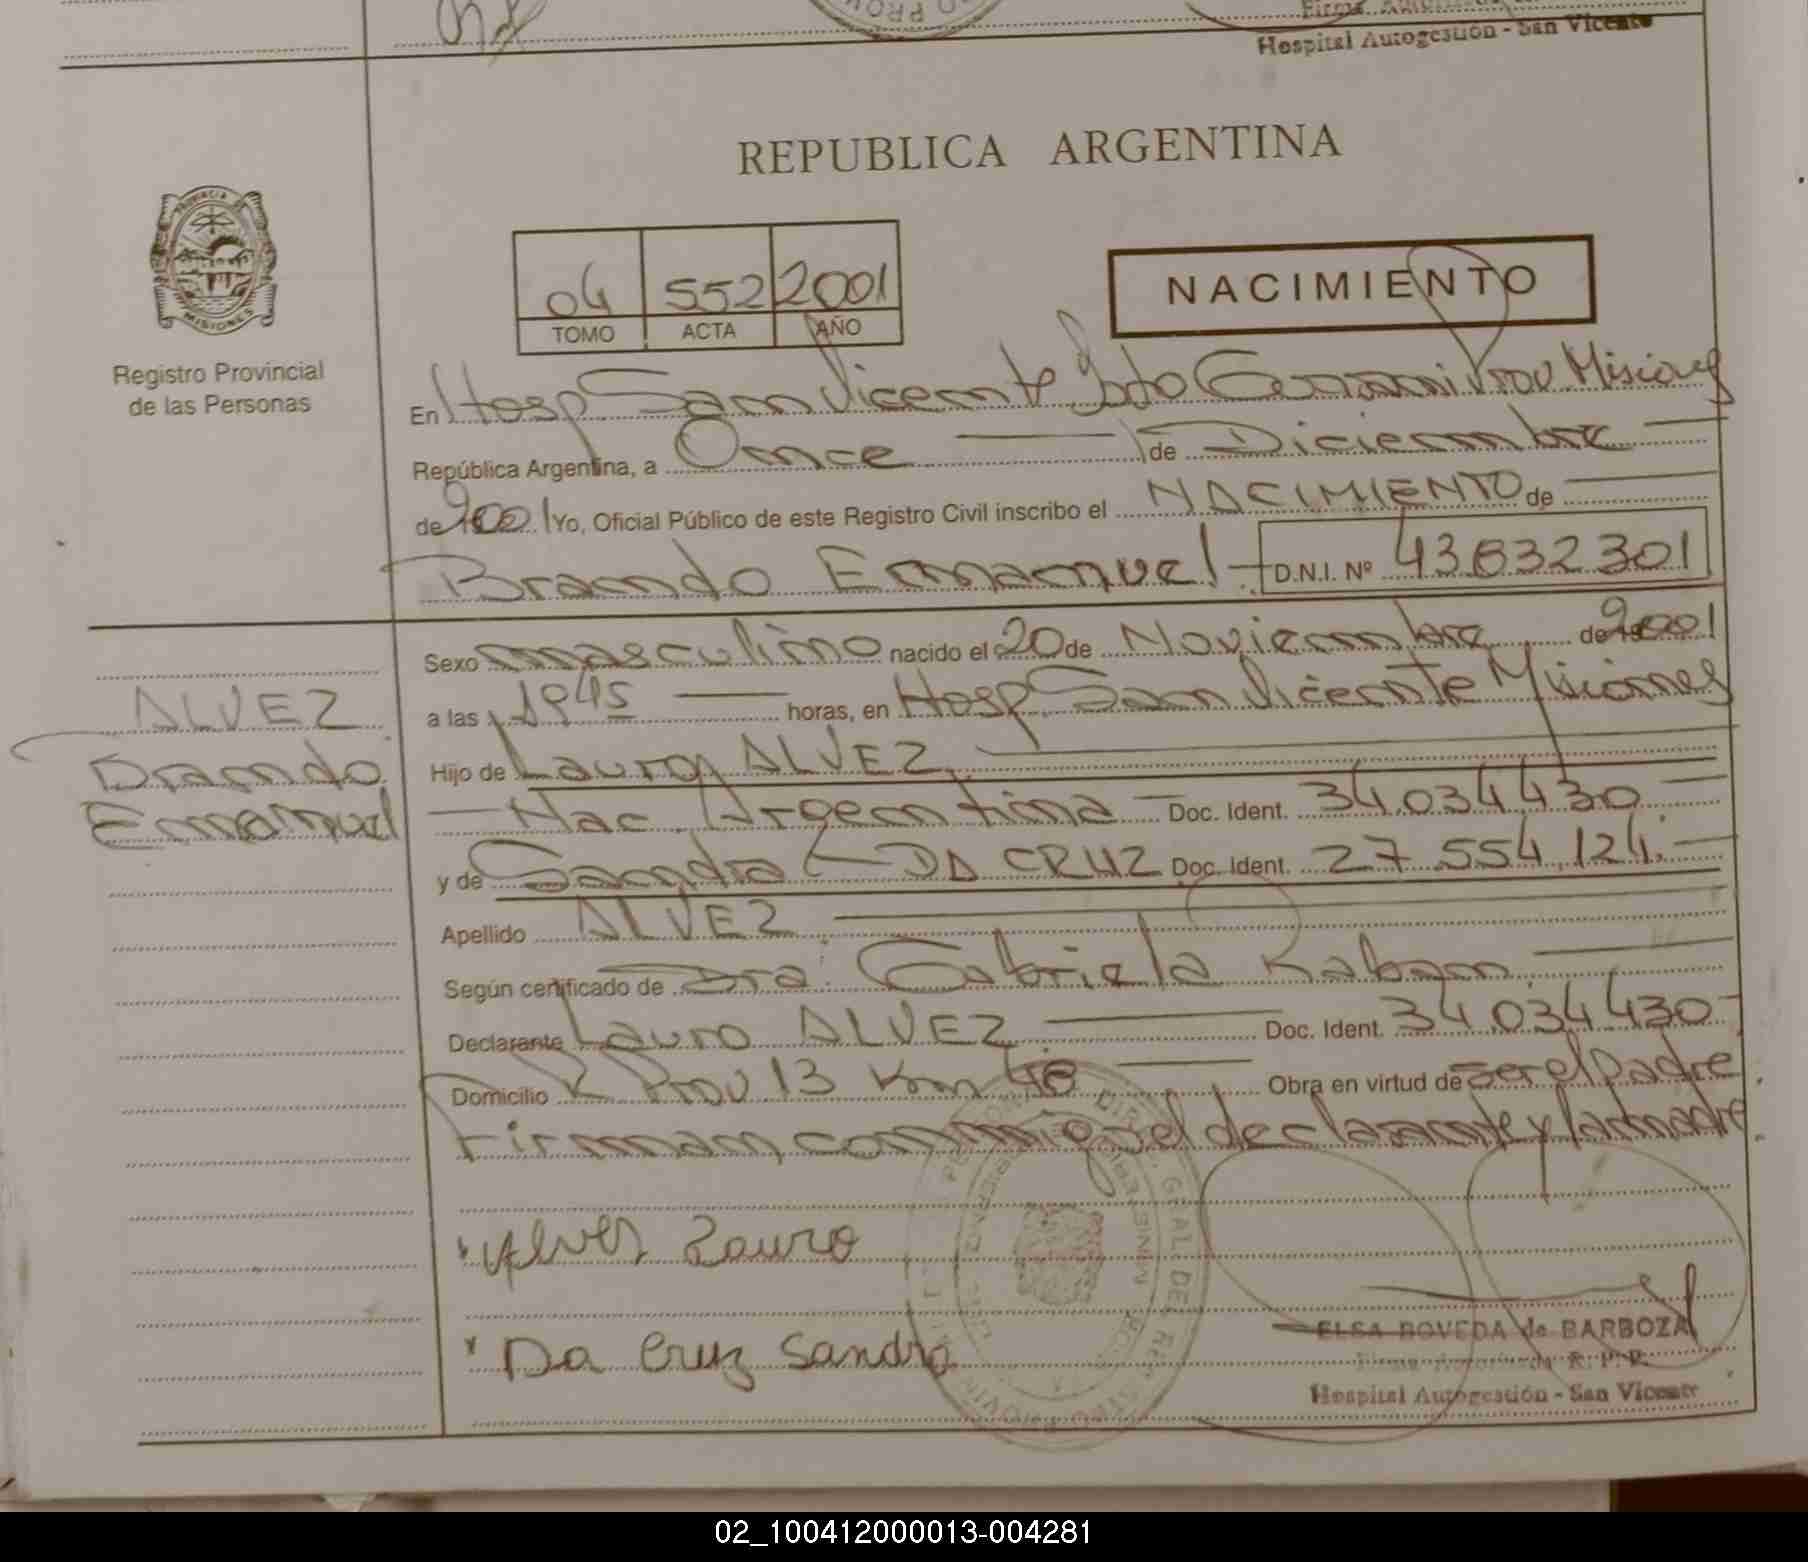 Hospital Autogestión - San Vicente
REPUBLICA ARGENTINA
PROVINCIA DE
MISIONES
Registro Provincial
de las Personas
04 552 2001
TOMO ACTA AÑO
NACIMIENTO
En Hosp San Vicente Dpto Guarani Prov Misiones
República Argentina, a Once de Diciembre
de 2001 Yo, Oficial Público de este Registro Civil inscribo el NACIMIENTO de
Brando Emmanuel D.N.I. Nº 43632301
Sexo masculino nacido el 20 de Noviembre de 2001
ALVEZ
Brando
Emmanuel
a las 1945 horas, en Hosp San Vicente Misiones
Hijo de Lauro ALVEZ
Nac. Argentina Doc. Ident. 34.034.430
y de Sandra DA CRUZ Doc. Ident. 27.554.124.
Apellido ALVEZ
Según certificado de Dra. Gabriela Kaban
Declarante Lauro ALVEZ Doc. Ident. 34.034.430
Domicilio R Prov 13 Km Obra en virtud de ser el padre
Firman conmigo el declarante y la madre
Alves Lauro
Da Cruz Sandra
ELSA BOVEDA de BARBOZA
Firma Autorizada R. P. P.
Hospital Autogestión - San Vicente
02_100412000013-004281